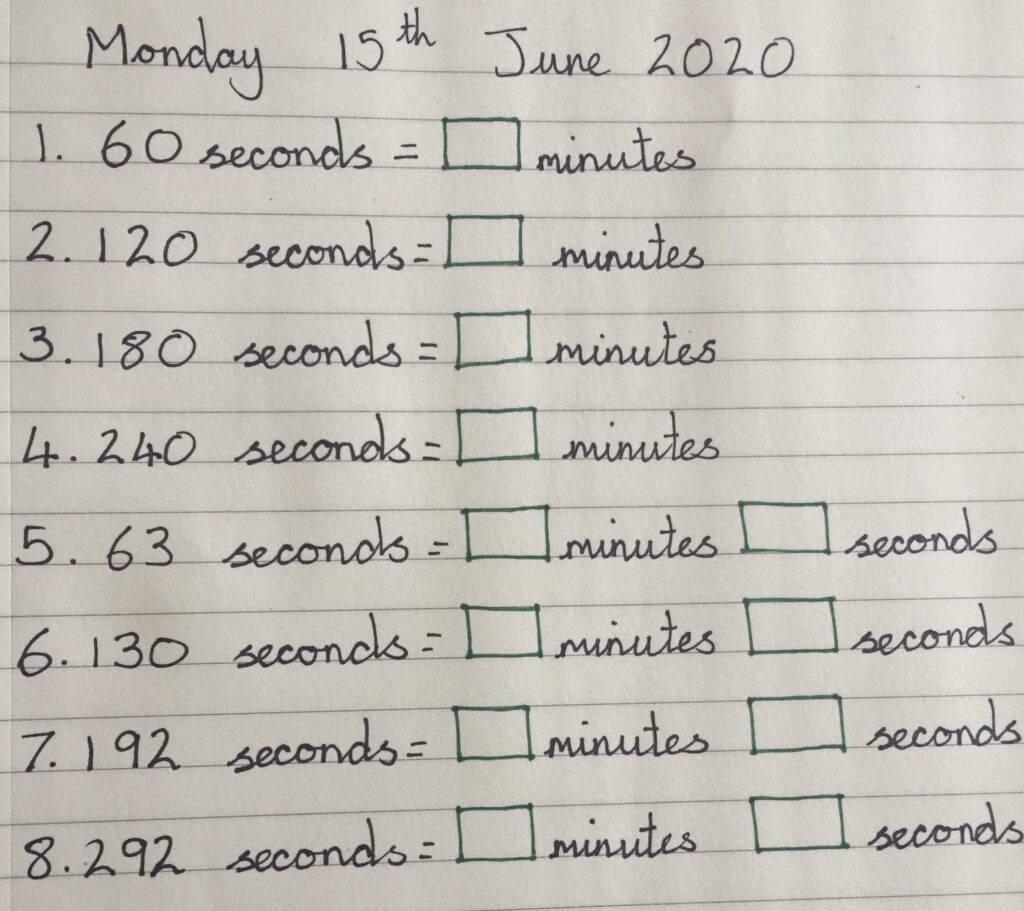 Monday 15th June 2020
1. 60 seconds = minutes
2. 120 seconds = minutes
3. 180 seconds = minutes
4. 240 seconds = minutes
5. 63 seconds = minutes seconds
6. 130 seconds = minutes seconds
7. 192 seconds = minutes seconds
8. 292 seconds = minutes seconds